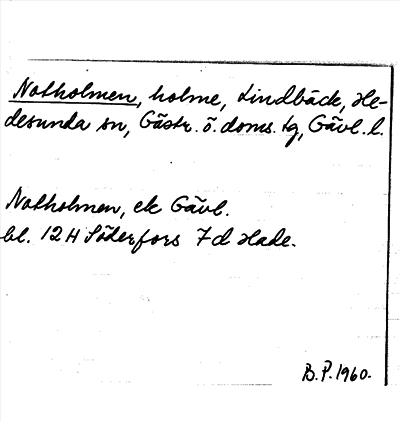 Notholmen, holme, Lindbäck, He-
desunda sn, Gästr. ö. doms. tg, Gävl. l.
Notholmen, ek Gävl.
bl. 12 H Söderfors 7 d Hade.
B.P. 1960.